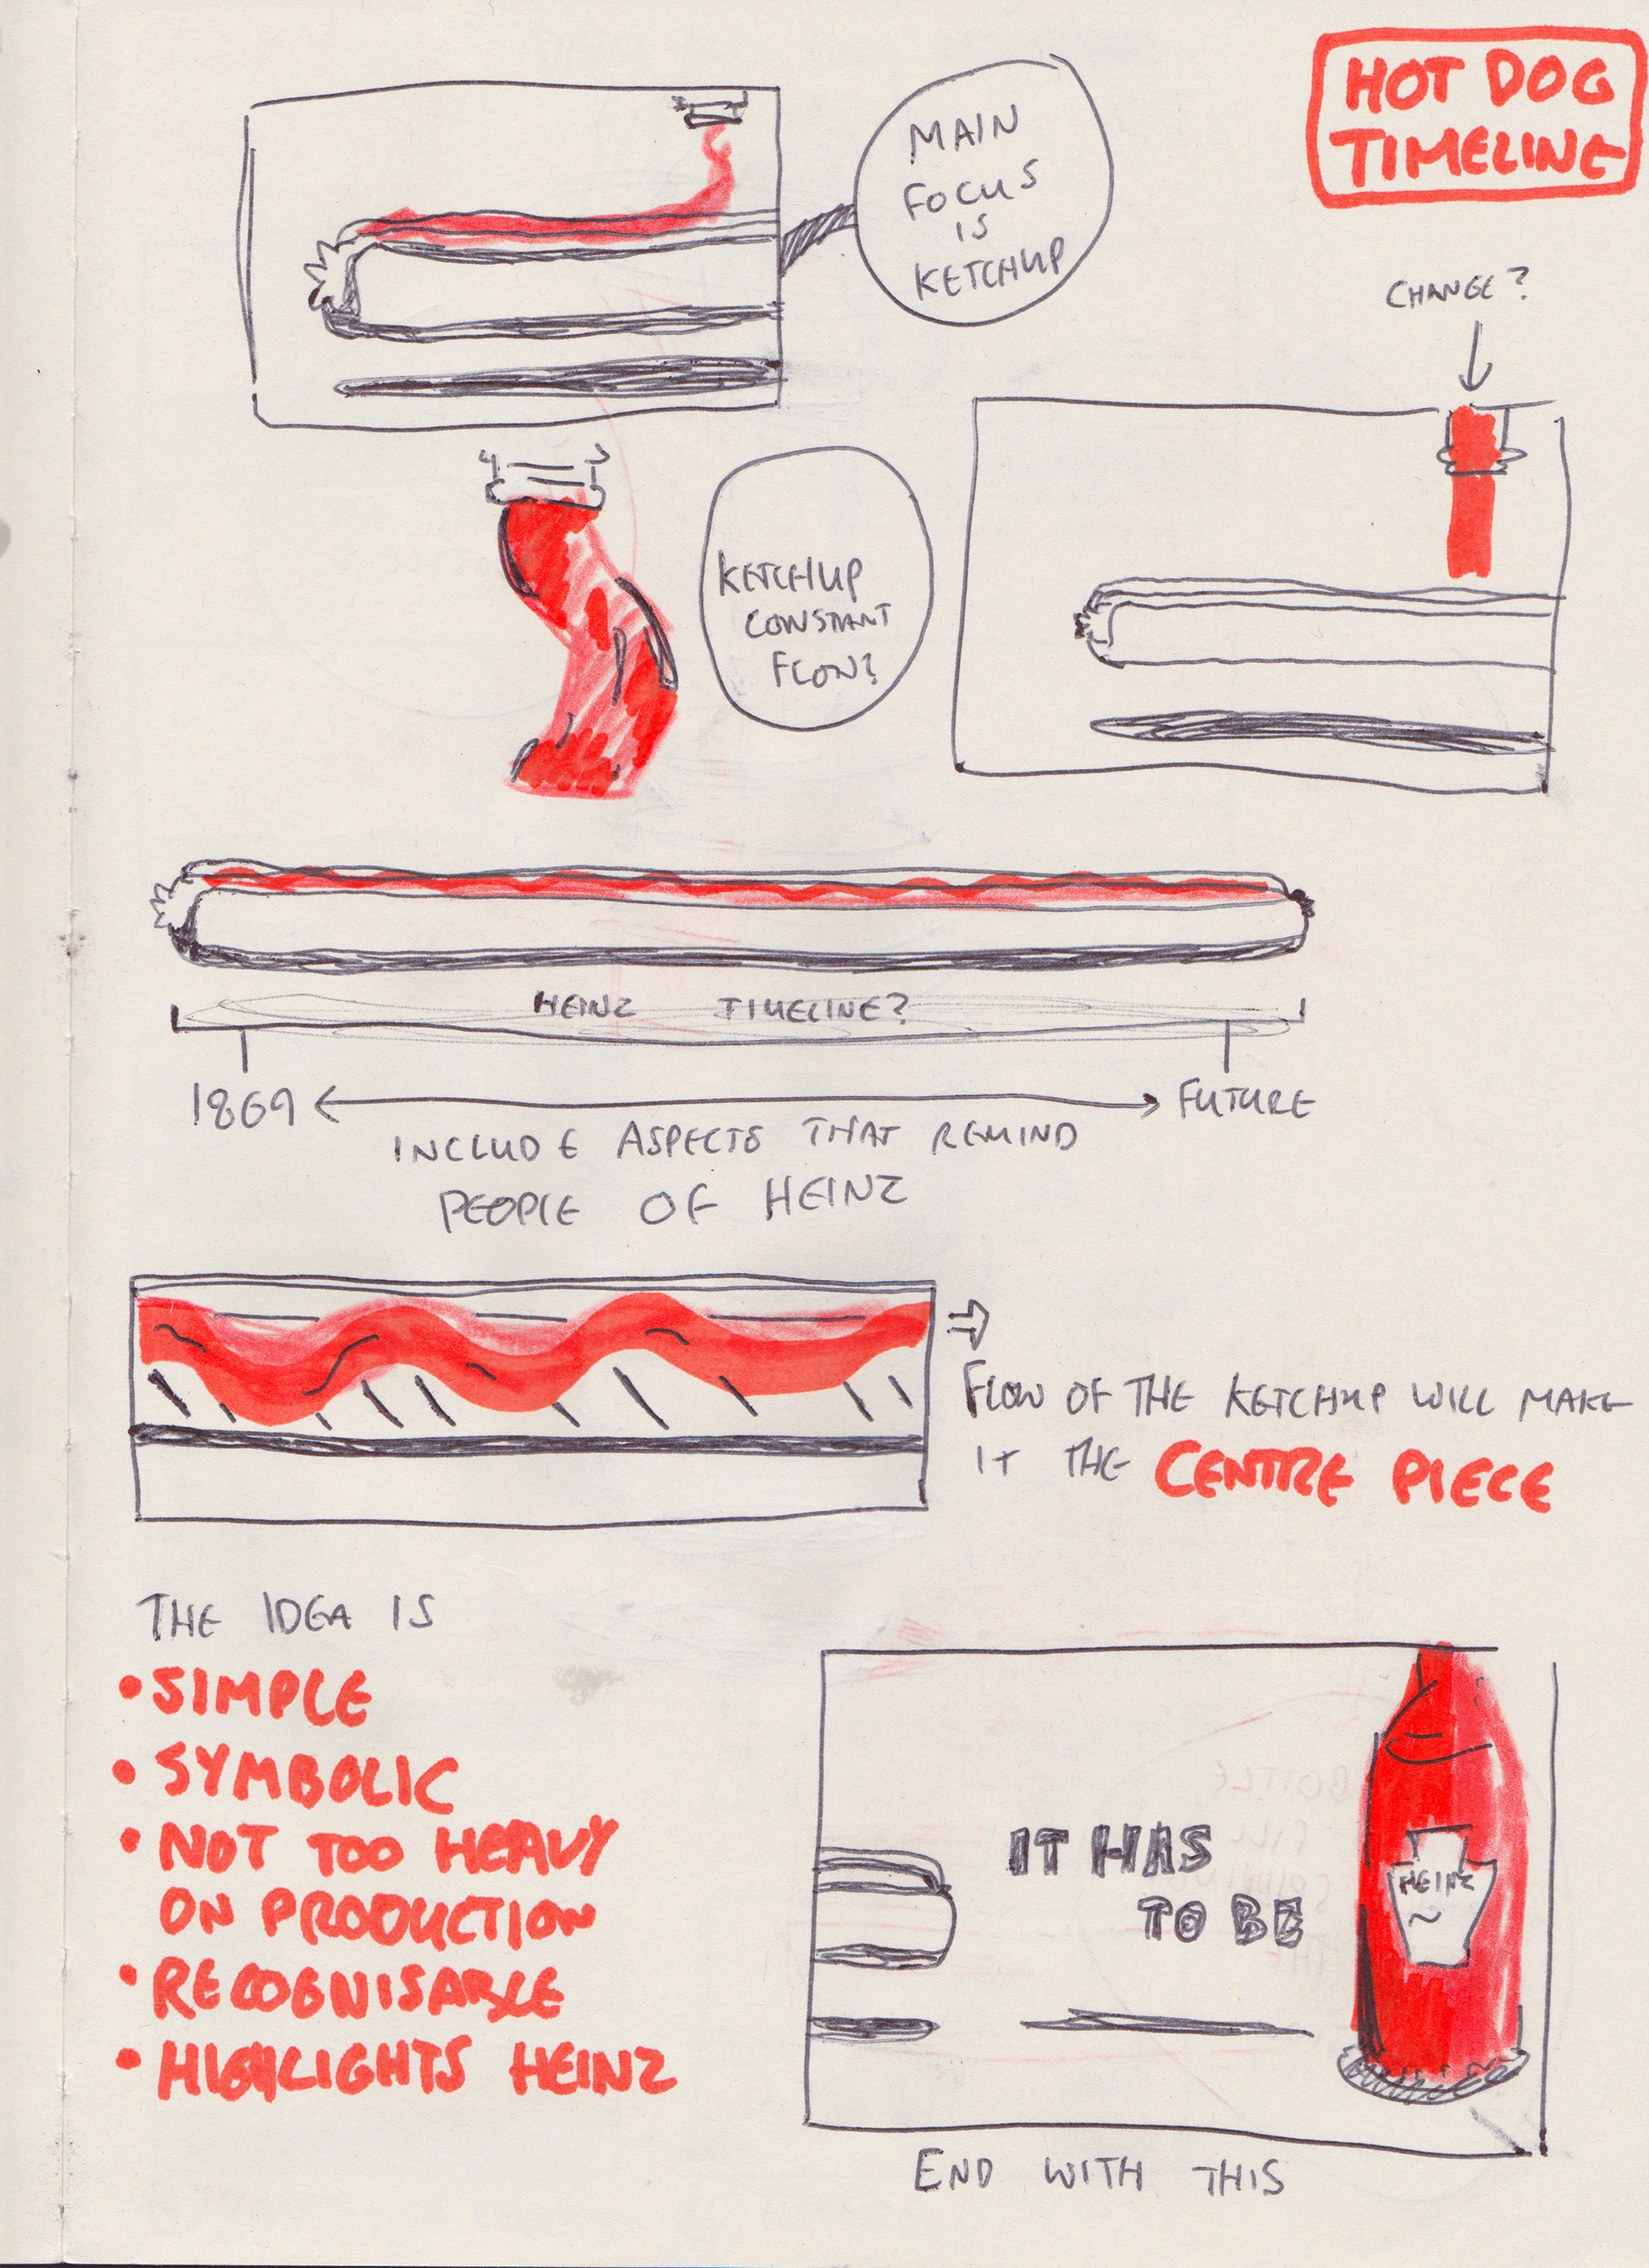 HOT DOG
TIMELINE
MAIN
FOCUS
IS
KETCHUP
CHANGE?
KETCHUP
CONSTANT
FLOW?
HEINZ TIMELINE?
1869 FUTURE
INCLUDE ASPECTS THAT REMIND
PEOPLE OF HEINZ
FLOW OF THE KETCHUP WILL MAKE
IT THE CENTRE PIECE
THE IDEA IS
• SIMPLE
• SYMBOLIC
• NOT TOO HEAVY
ON PRODUCTION
• RECOGNISABLE
• HIGHLIGHTS HEINZ
IT HAS
TO BE
HEINZ
END WITH THIS